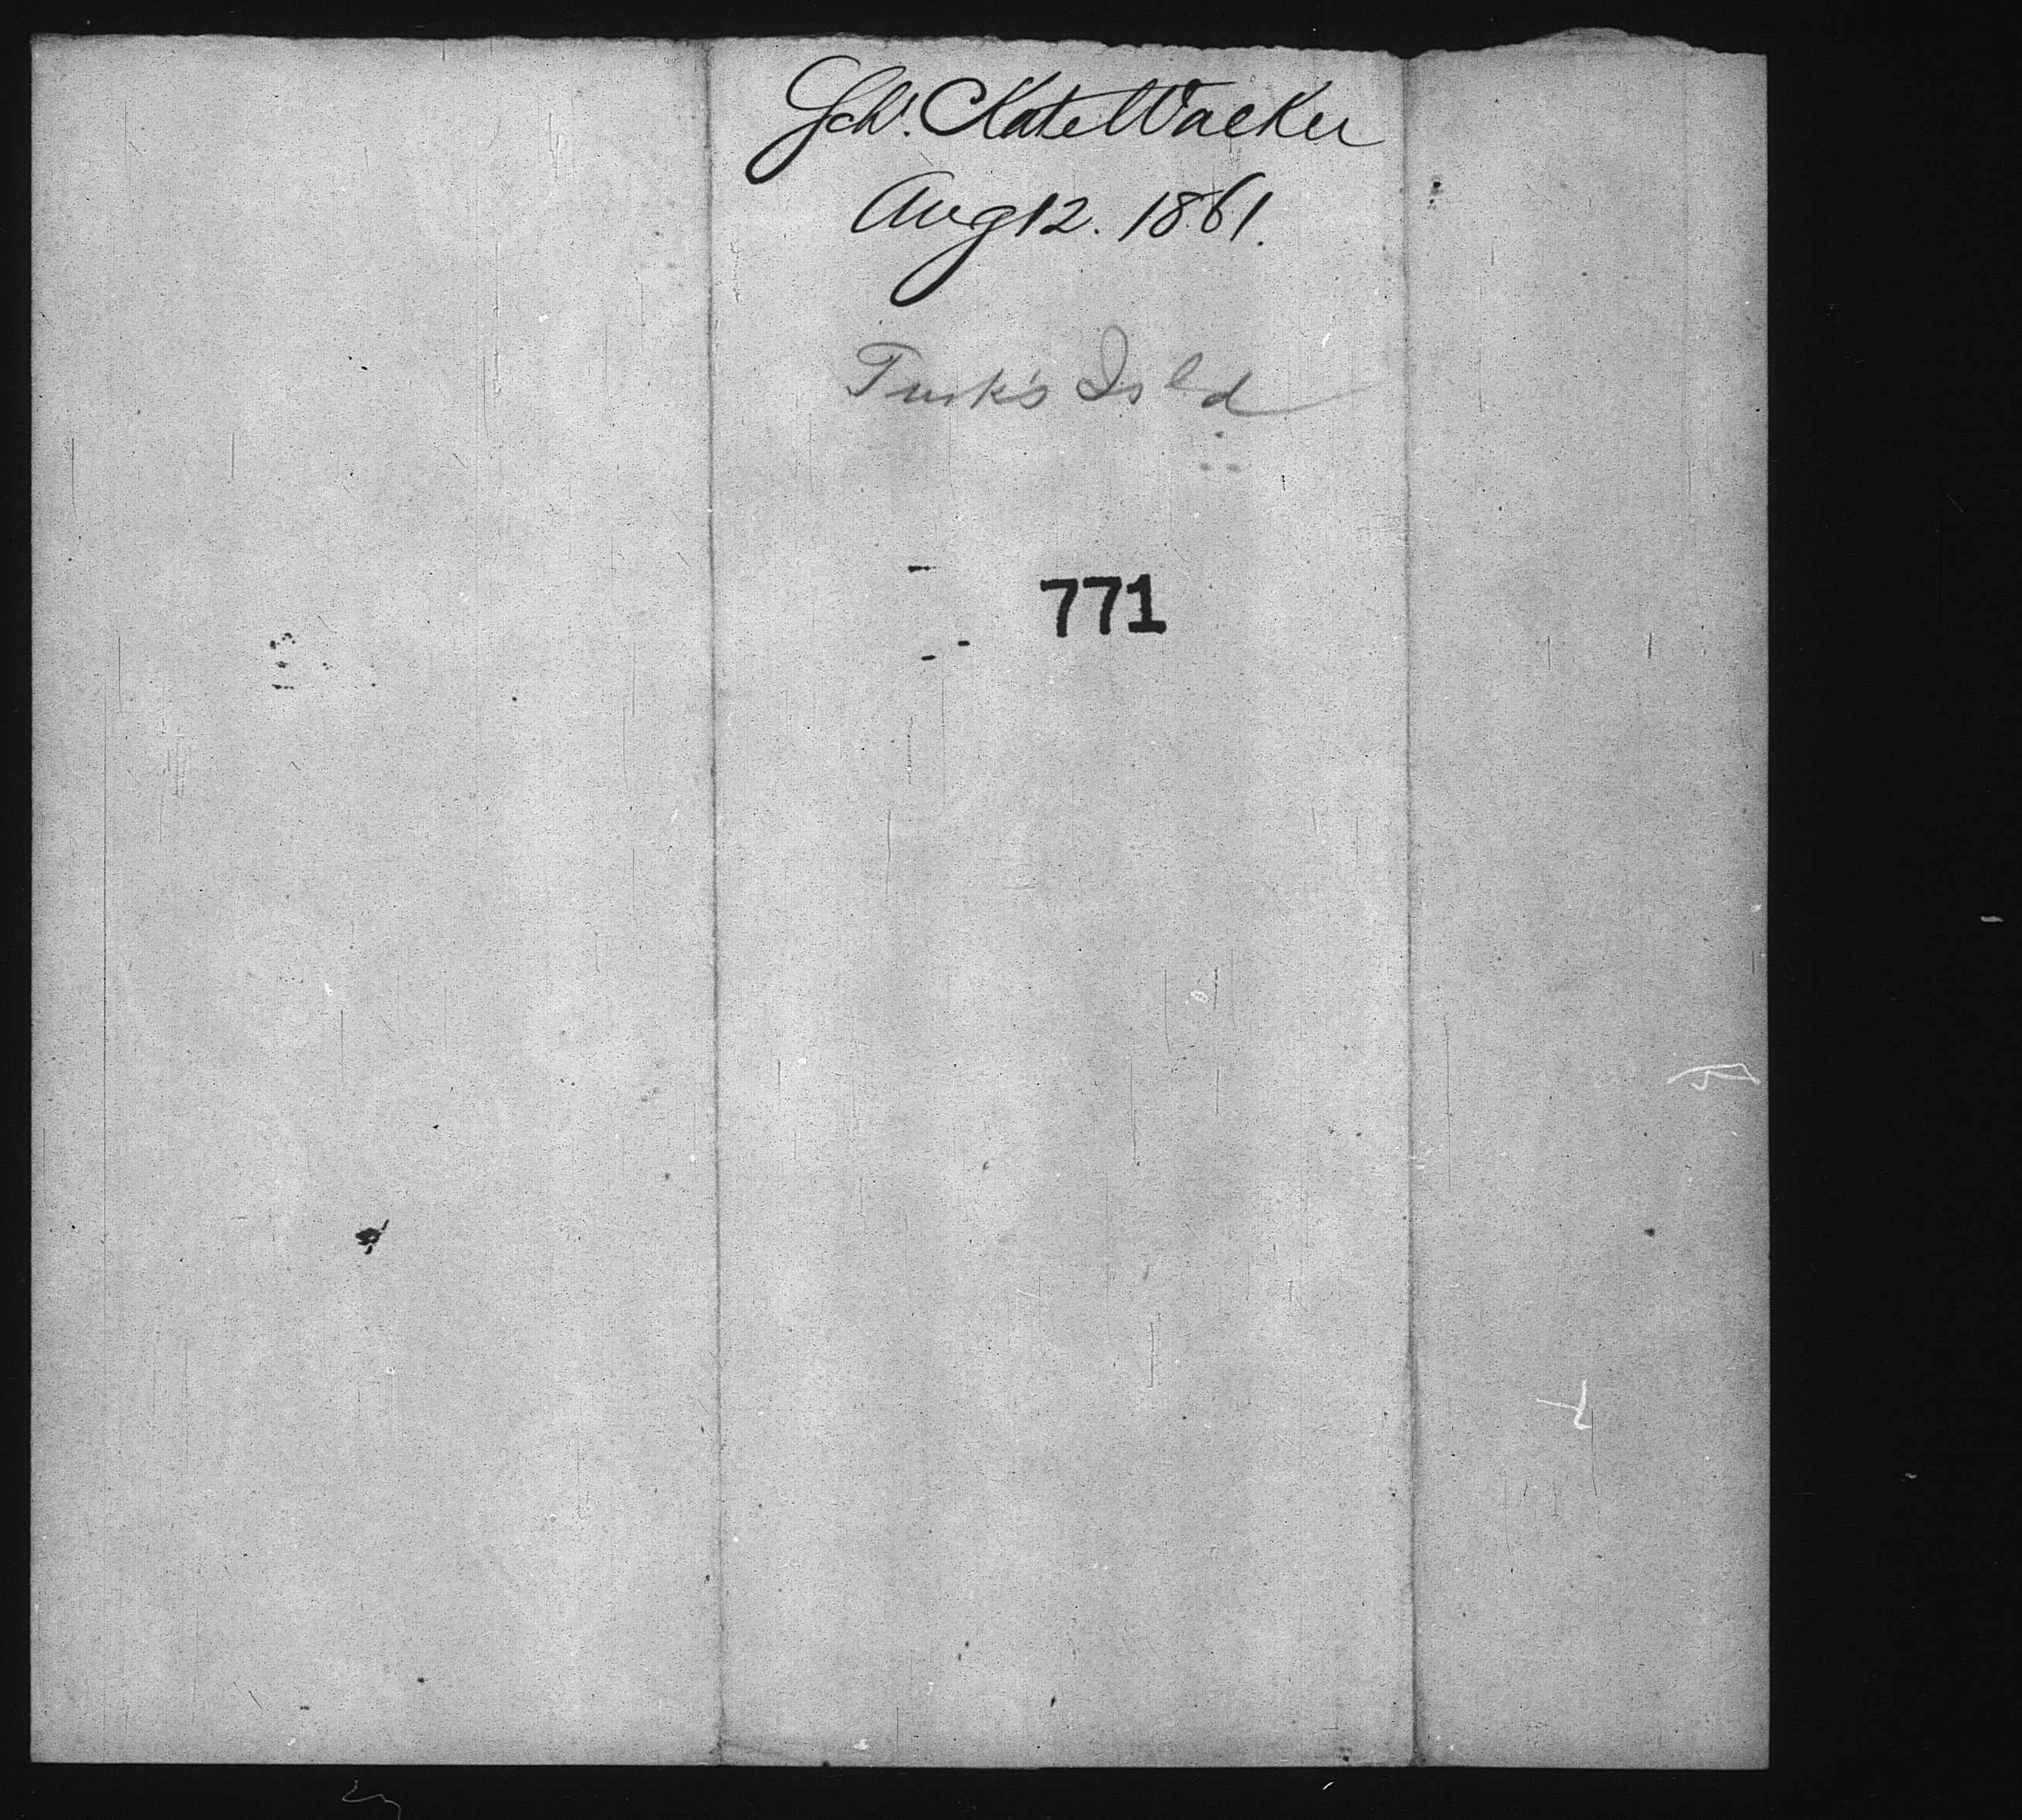 Schr. Kate Walker
Aug 12. 1861.
Turk's Isld
771